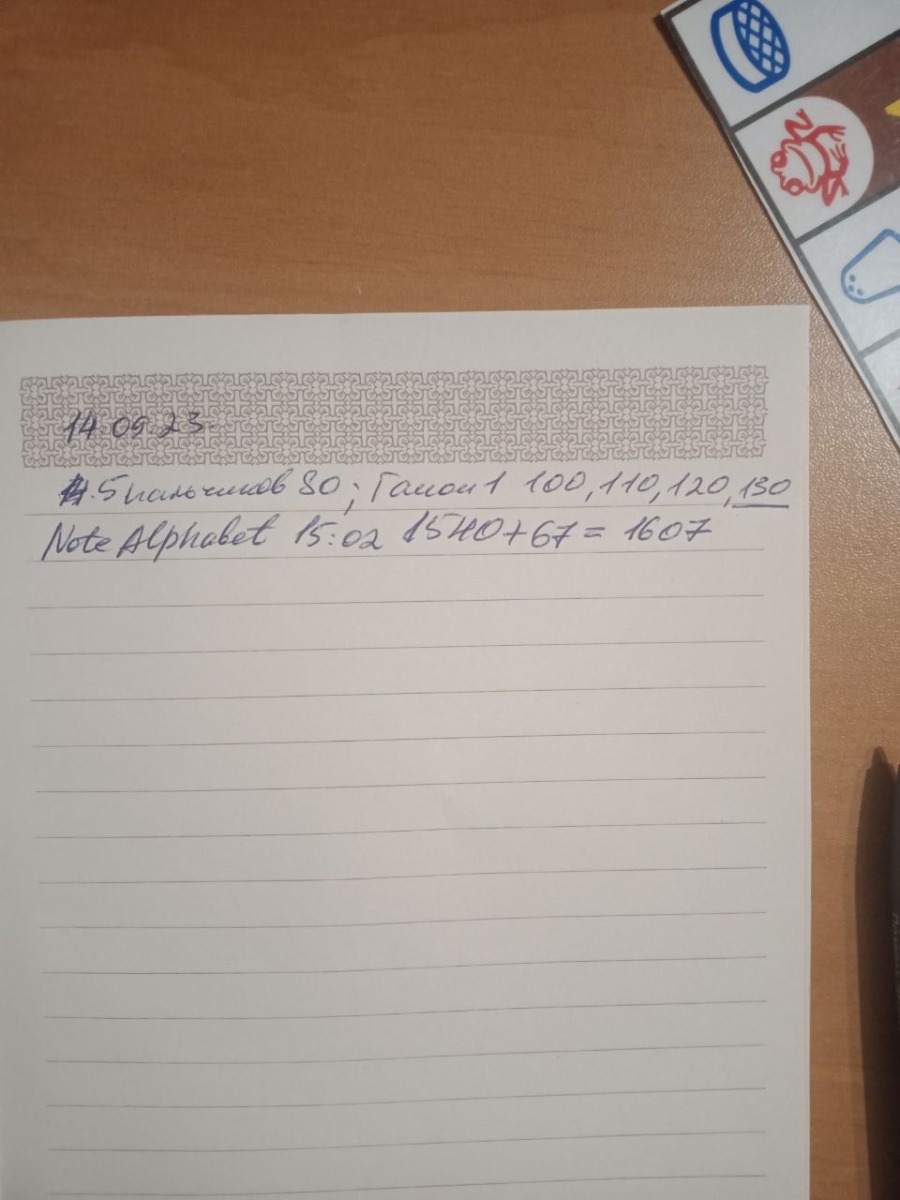 14.09.23.
5 пальчиков 80; Ганон 1 100, 110, 120, 130
Note Alphabet 15:02 1540+67= 1607